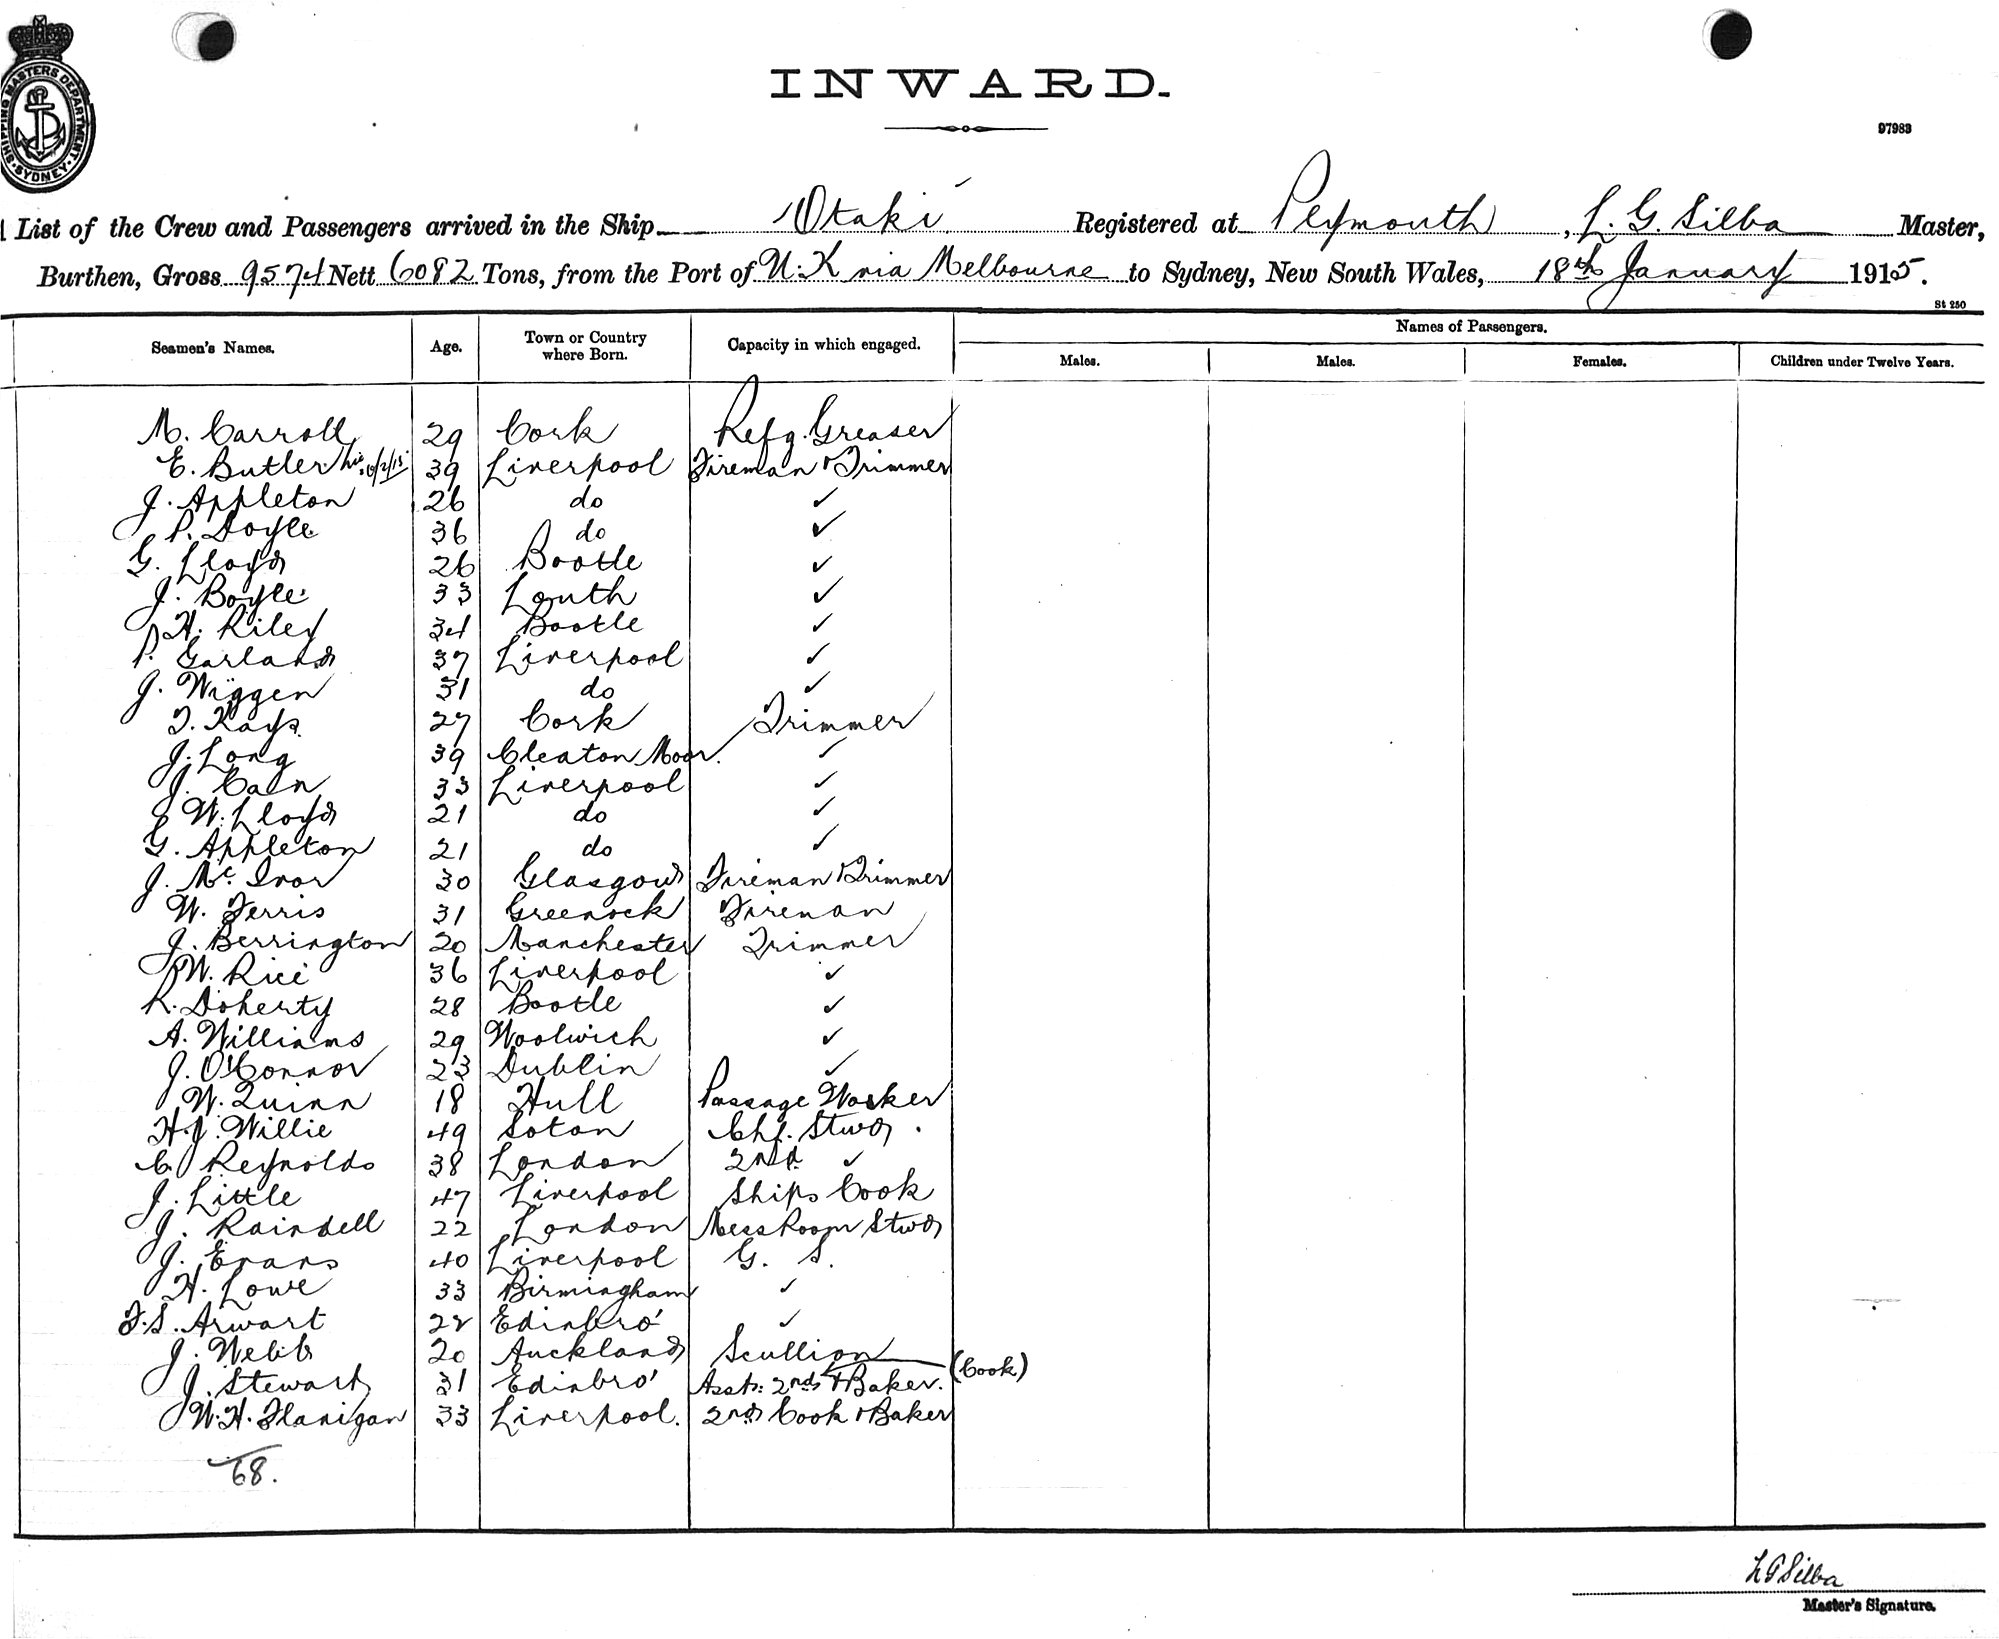 INWARD.
SHIPPING MASTERS DEPARTMENT SYDNEY
97983
List of the Crew and Passengers arrived in the Ship Otaki Registered at Plymouth, L. G. Silba Master,
Burthen, Gross 9574 Nett 6082 Tons, from the Port of U.K via Melbourne to Sydney, New South Wales, 18th January 1915.
St 250
Seamen's Names. Age. Town or Country where Born. Capacity in which engaged. Names of Passengers.
Males. Males. Females. Children under Twelve Years.
M. Carroll 29 Cork Refg. Greaser
E. Butler 39 Liverpool Fireman & Trimmer
J. Appleton 26 do ✓
P. Doyle 36 do ✓
G. Lloyd 26 Bootle ✓
J. Boyle 33 Louth ✓
H. Riley 34 Bootle ✓
P. Garland 37 Liverpool ✓
J. Wiggen 31 do ✓
T. Kays 27 Cork Trimmer
J. Long 39 Cleaton Moor. ✓
J. Cain 33 Liverpool ✓
W. Lloyd 21 do ✓
G. Appleton 21 do ✓
J. Mc. Ivor 30 Glasgow Fireman & Trimmer
W. Ferris 31 Greenock Fireman
J. Berrington 20 Manchester Trimmer
W. Rice 36 Liverpool ✓
R. Doherty 28 Bootle ✓
A. Williams 29 Woolwich ✓
J. O'Connor 23 Dublin ✓
W. Quinn 18 Hull Passage Worker
H.J. Willie 49 Soton Chf. Stwd.
C. Reynolds 38 London 2nd ✓
J. Little 47 Liverpool Ships Cook
J. Raindell 22 London Mess Room Stwd
J. Evans 40 Liverpool G. S.
H. Lowe 33 Birmingham ✓
F.S. Arwart 22 Edinbro' ✓
J. Webb 20 Auckland Scullion
J. Stewart 31 Edinbro' Asst: 2nd & Baker. (Cook)
W.H. Flanigan 33 Liverpool. 2nd Cook & Baker
68.
L G Silba
Master's Signature.